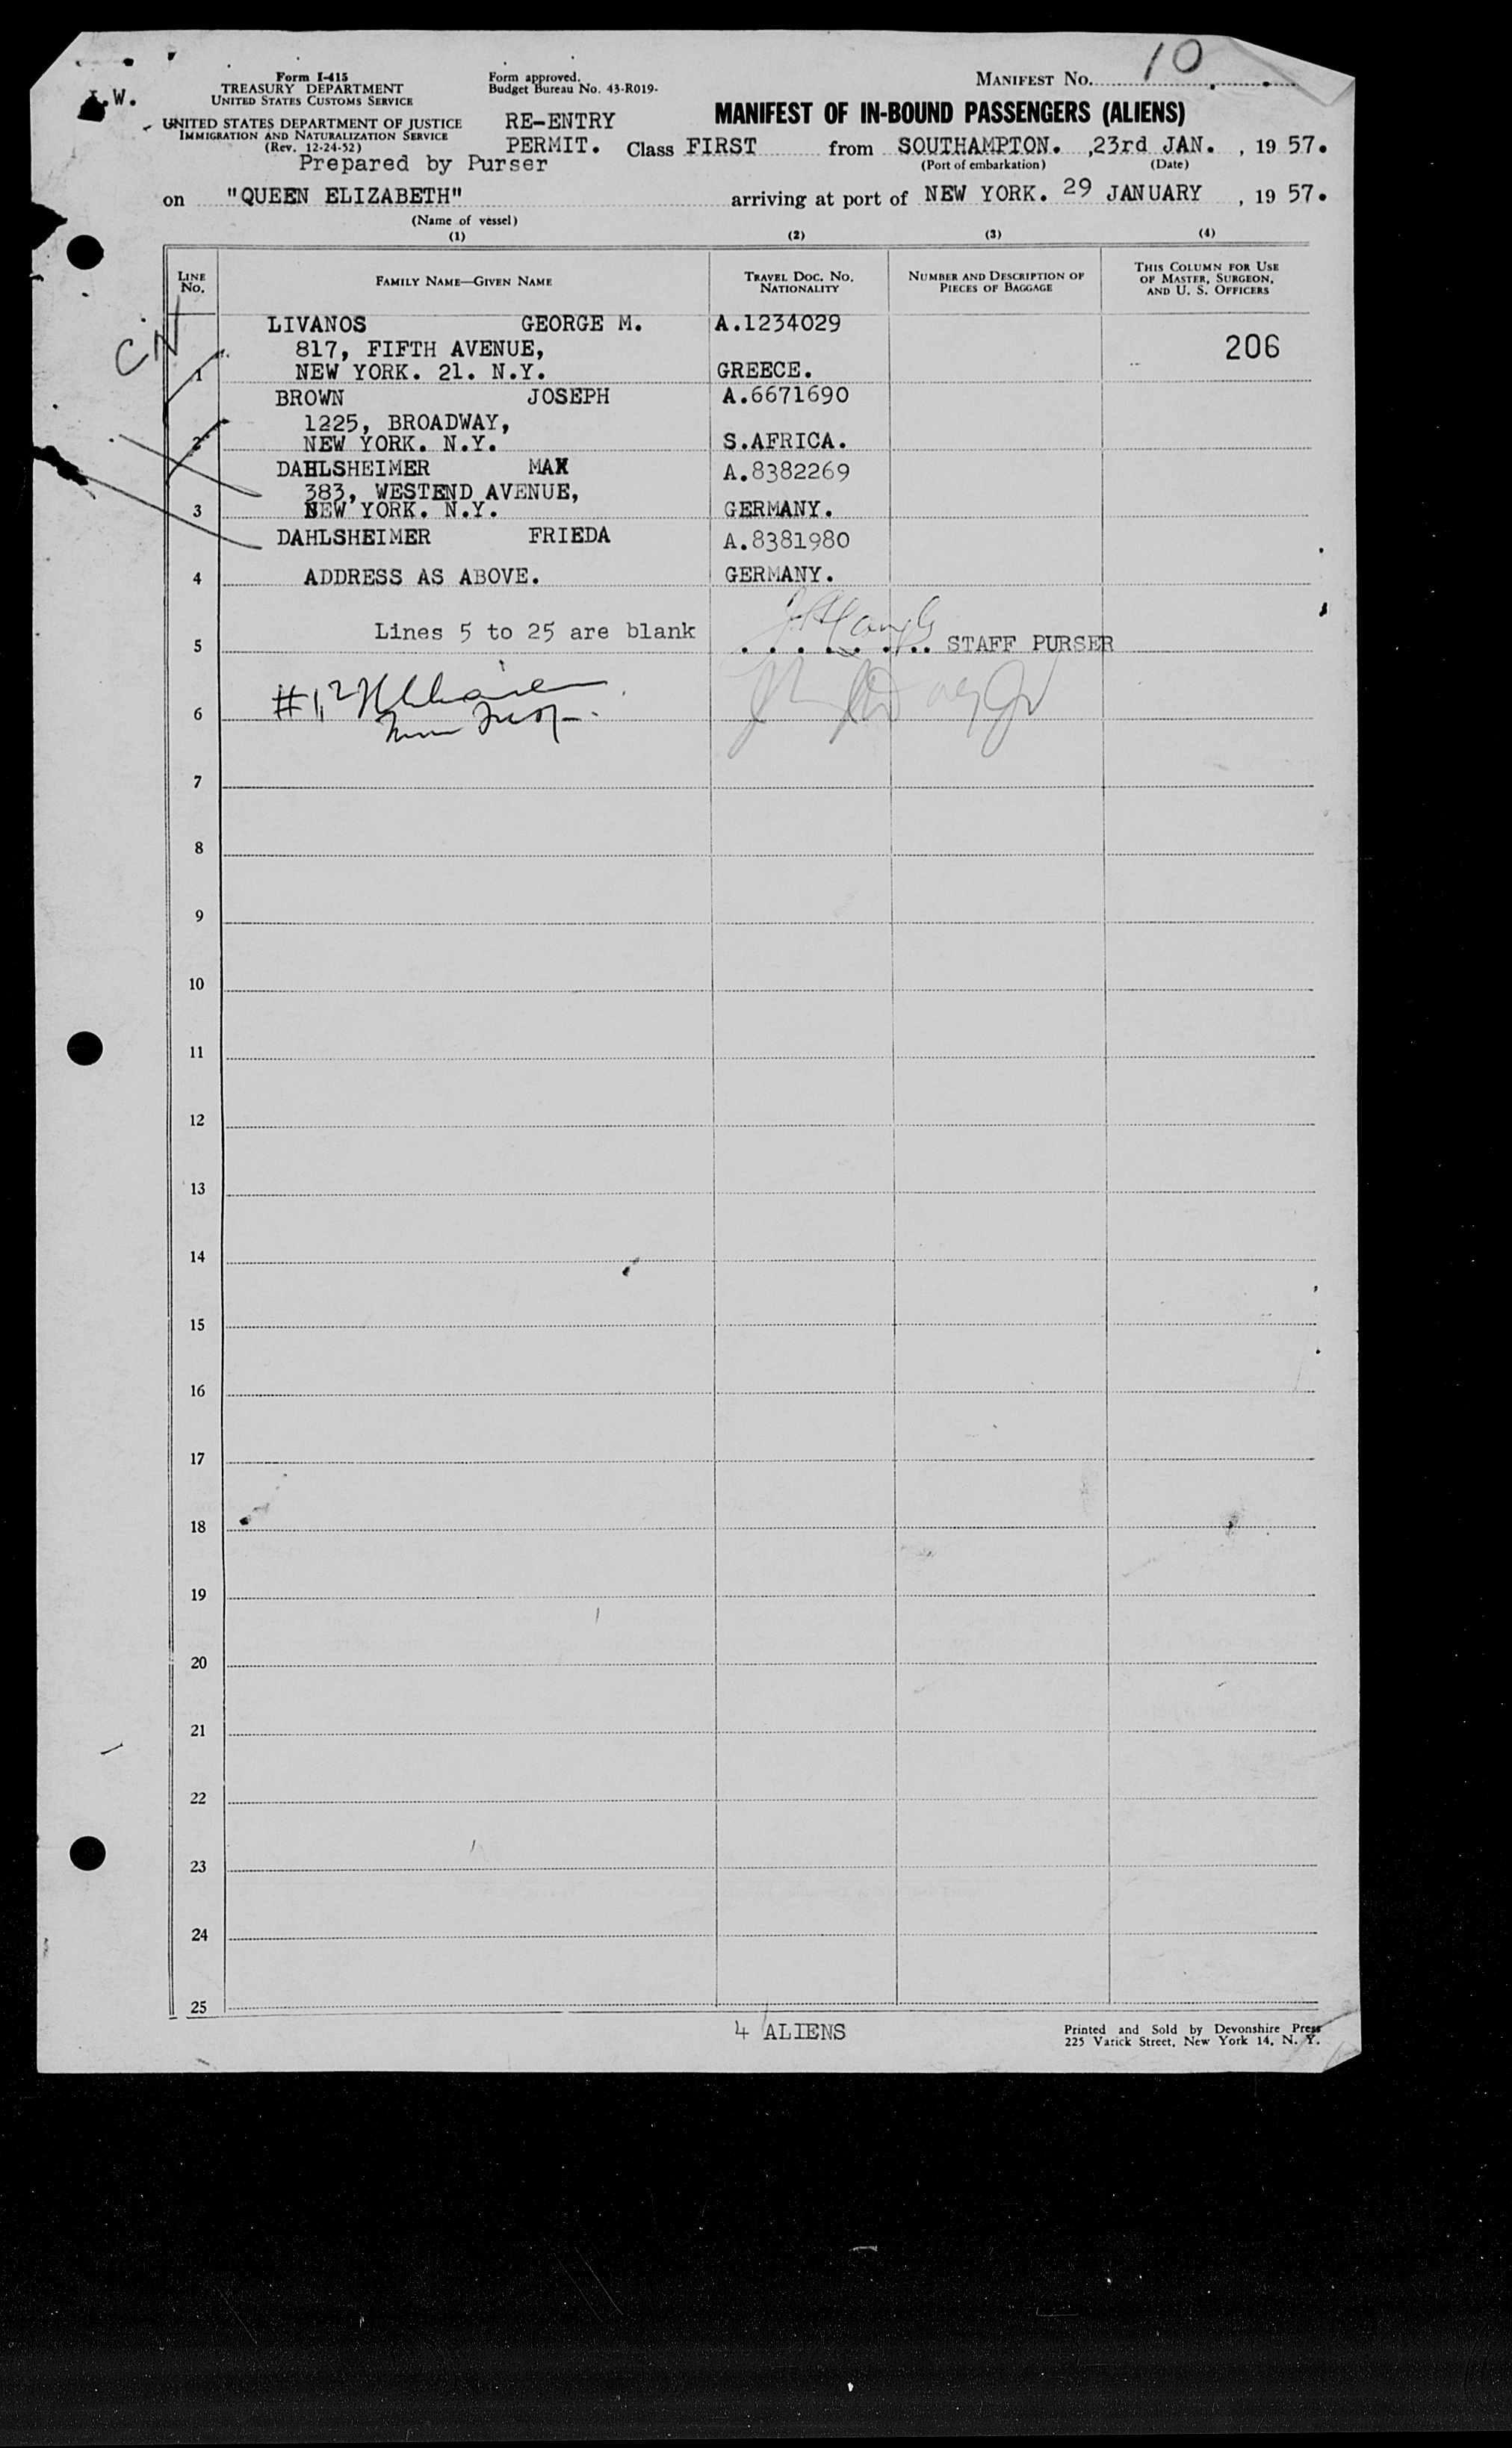 MANIFEST No. 10
Form I-415
TREASURY DEPARTMENT
UNITED STATES CUSTOMS SERVICE
Form approved.
Budget Bureau No. 43-R019-
.W.
UNITED STATES DEPARTMENT OF JUSTICE
IMMIGRATION AND NATURALIZATION SERVICE
(Rev. 12-24-52)
Prepared by Purser
RE-ENTRY
PERMIT.
MANIFEST OF IN-BOUND PASSENGERS (ALIENS)
Class FIRST from SOUTHAMPTON. ,23rd JAN. , 19 57.
(Port of embarkation) (Date)
on "QUEEN ELIZABETH" arriving at port of NEW YORK. 29 JANUARY , 19 57.
(Name of vessel)
(1) (2) (3) (4)
LINE No. FAMILY NAME—GIVEN NAME TRAVEL DOC. NO. NATIONALITY NUMBER AND DESCRIPTION OF PIECES OF BAGGAGE THIS COLUMN FOR USE OF MASTER, SURGEON, AND U. S. OFFICERS
CN
LIVANOS GEORGE M. A.1234029
817, FIFTH AVENUE, 206
1 NEW YORK. 21. N.Y. GREECE.
BROWN JOSEPH A.6671690
1225, BROADWAY,
2 NEW YORK. N.Y. S.AFRICA.
DAHLSHEIMER MAX A.8382269
383, WESTEND AVENUE,
3 NEW YORK. N.Y. GERMANY.
DAHLSHEIMER FRIEDA A.8381980
4 ADDRESS AS ABOVE. GERMANY.
Lines 5 to 25 are blank
5 . . . . . . . . STAFF PURSER
#1,2
6
7
8
9
10
11
12
13
14
15
16
17
18
19
20
21
22
23
24
25
4 ALIENS
Printed and Sold by Devonshire Press
225 Varick Street, New York 14, N. Y.